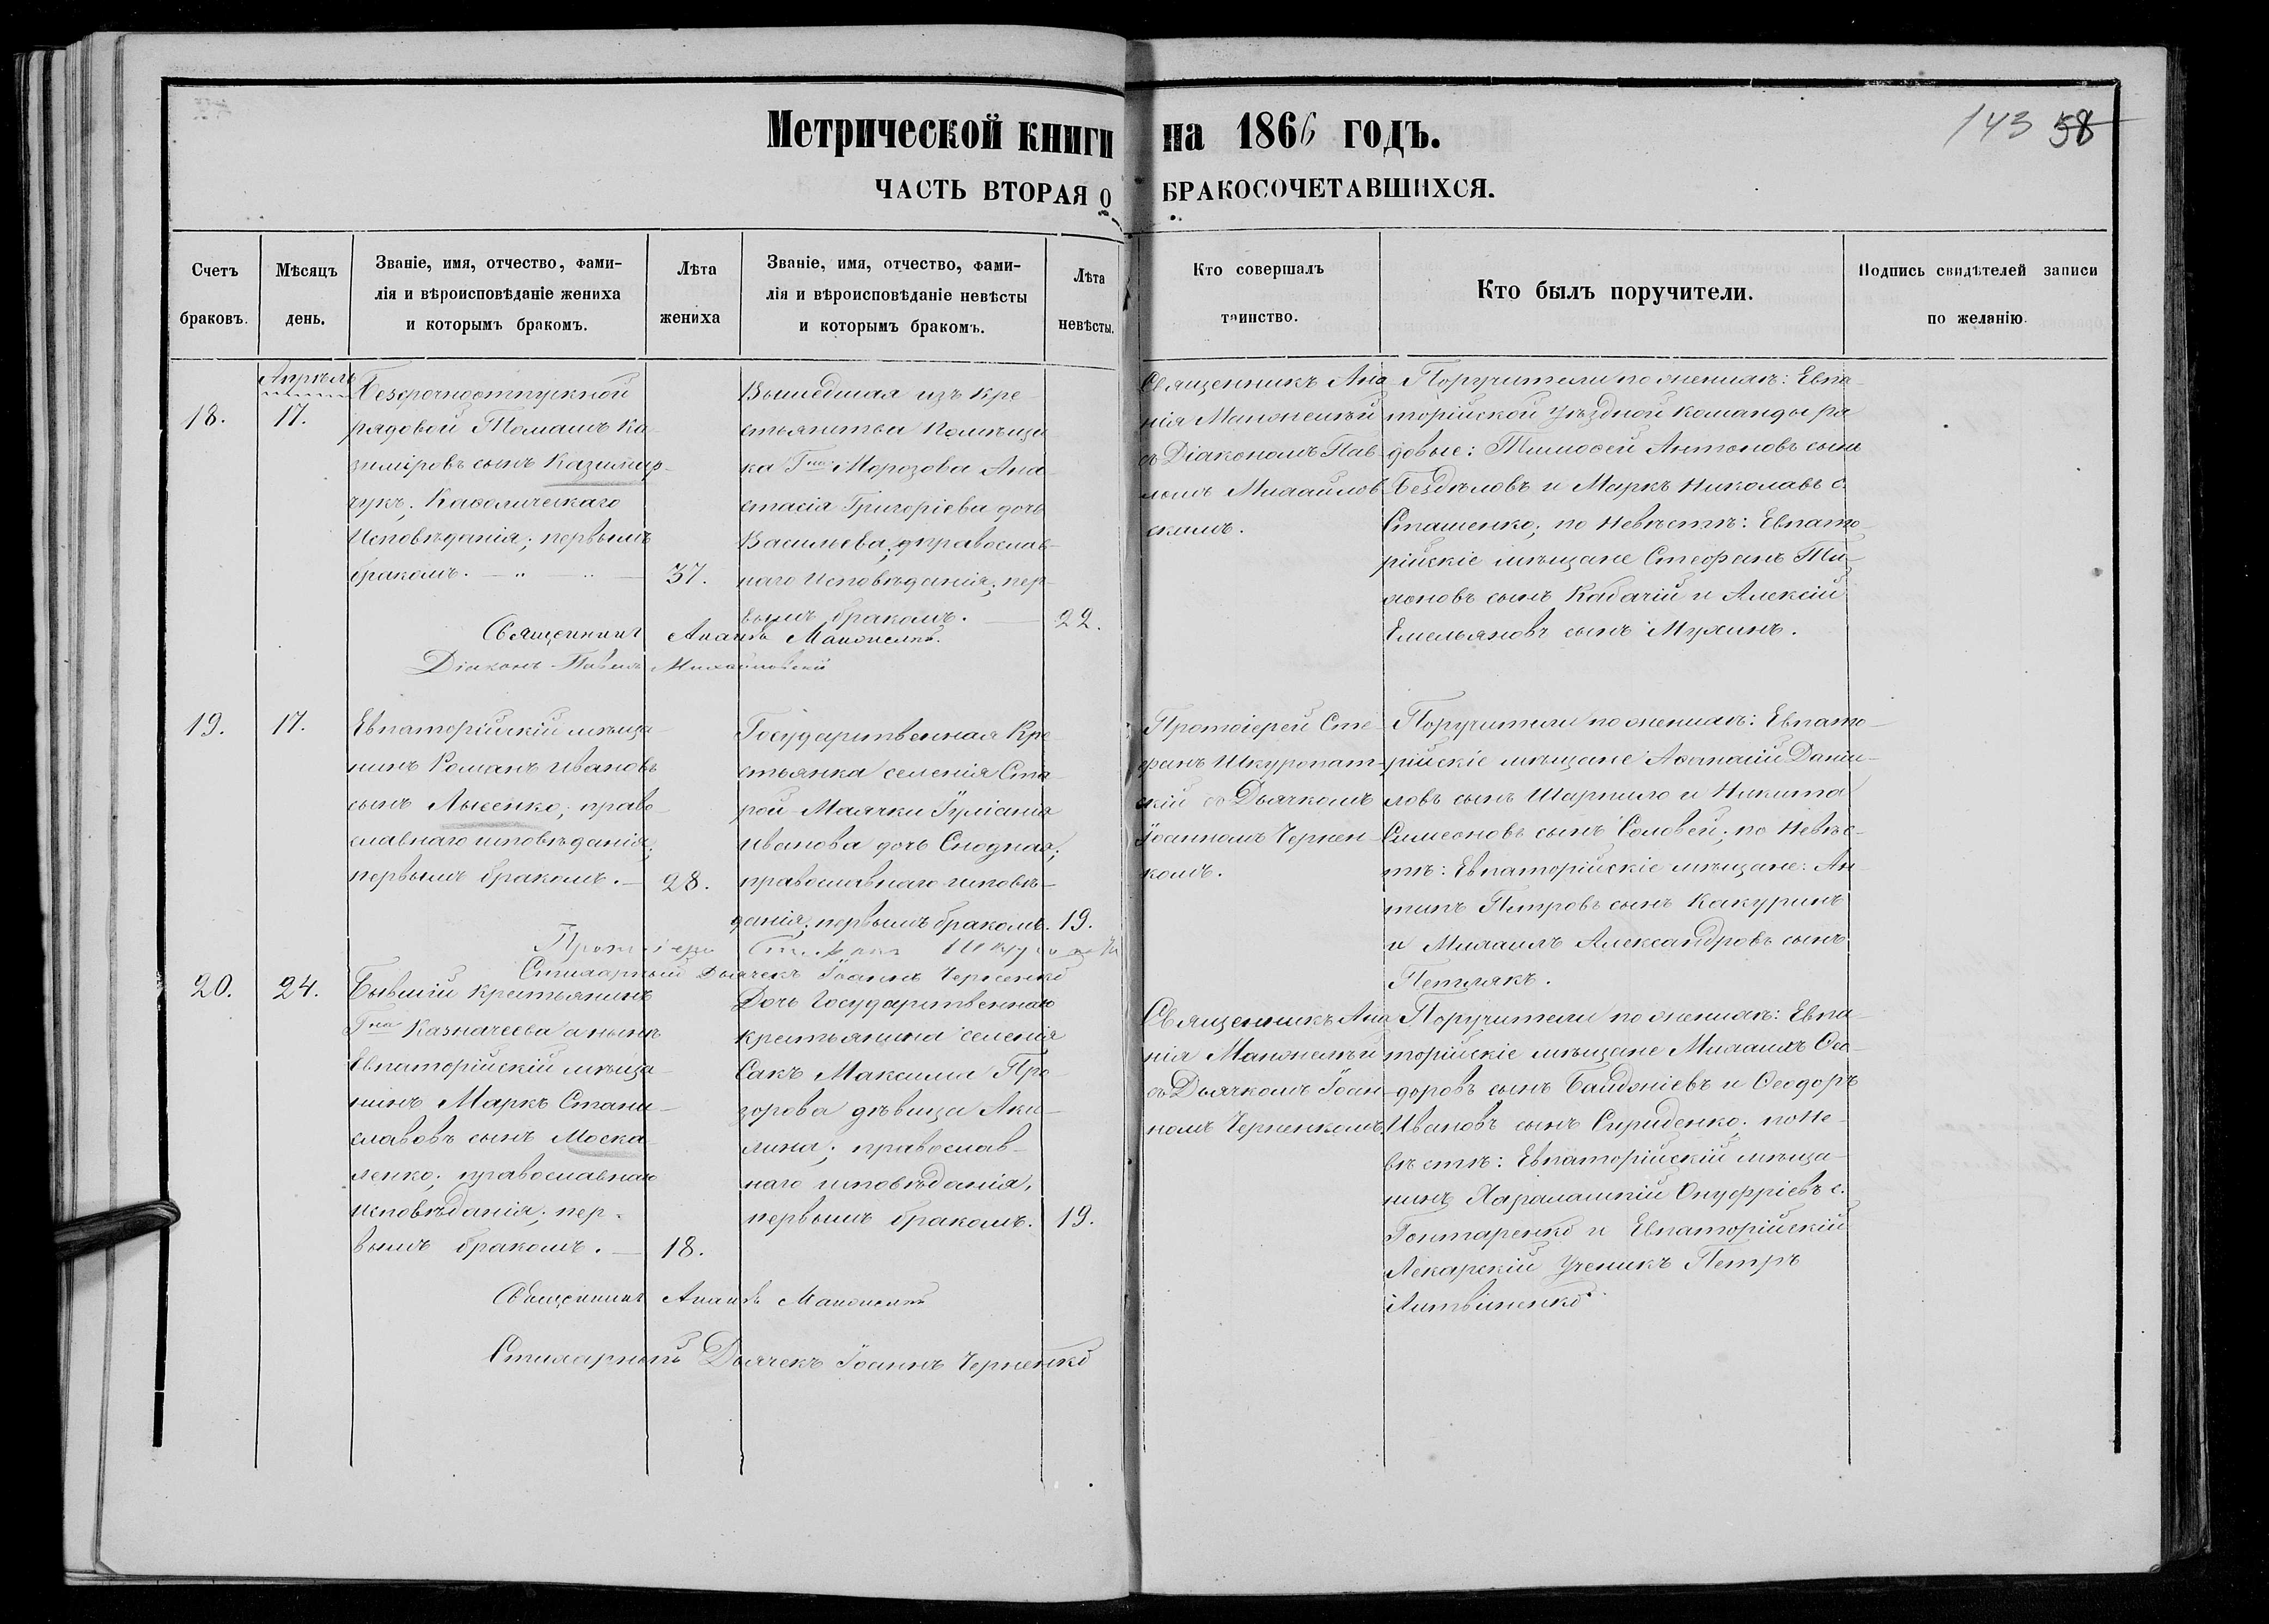 Метрической книги на 1866 годъ.
143 58
ЧАСТЬ ВТОРАЯ о БРАКОСОЧЕТАВШИХСЯ.
Счетъ браковъ.
Мѣсяцъ день.
Званіе, имя, отчество, фами-
лія и вѣроисповѣданіе жениха
и которымъ бракомъ.
Лѣта жениха
Званіе, имя, отчество, фами-
лія и вѣроисповѣданіе невѣсты
и которымъ бракомъ.
Лѣта невѣсты.
Кто совершалъ
таинство.
Кто былъ поручители.
Подпись свидѣтелей записи
по желанію.
18.
Апрѣль
17.
Безсрочноотпускной
рядовой Томашъ Ка-
зиміровъ сынъ Казимир-
чукъ; Каѳолическаго
Исповѣданія; первымъ
бракомъ.
37.
Вышедшая изъ кре-
стьянства Помѣщи-
ка Гна Морозова Ана-
стасія Григоріева дочь
Васильева; православ-
наго Исповѣданія; пер-
вымъ бракомъ.
22.
Священникъ Ана-
нія Манжелѣй
съ Діакономъ Пав-
ломъ Михайлов-
скимъ.
Поручители по женихѣ: Евпа-
торійской уѣздной команды ря
довые: Тимоѳей Антоновъ сынъ
Бездѣловъ и Маркъ Николаевъ с.
Сташенко; по невѣстѣ: Евпато-
рійскіе мѣщане Стефанъ Ти-
хоновъ сынъ Кабачій и Алексій
Емельяновъ сынъ Мухинъ.
Священникъ Ананій Манжелѣй
Діаконъ Павелъ Михайловскій
19.
17.
Евпаторійскій мѣща-
нинъ Романъ Ивановъ
сынъ Лысенко; право-
славнаго исповѣданія;
первымъ бракомъ.
28.
Государственная Кре-
стьянка селенія Ста-
рой-Маячки Іуліанія
Иванова дочь Сподная;
православнаго исповѣ-
данія; первымъ бракомъ.
19.
Протоіерей Сте-
фанъ Шкуропат-
скій съ Дьячкомъ
Іоанномъ Чернен-
комъ.
Поручители по женихѣ: Евпато-
рійскіе мѣщане Аѳанасій Даніи-
ловъ сынъ Шарпило и Никита
Симеоновъ сынъ Соловей; по Невѣс-
тѣ: Евпаторійскіе мѣщане: Ан
типъ Петровъ сынъ Какуринъ
и Михаилъ Александровъ сынъ
Петлякъ.
Протоіерей Стефанъ
Стихарный Дьячекъ Іоаннъ Черненко
20.
24.
Бывшій крестьянинъ
Гна Казначеева а нынѣ
Евпаторійскій мѣща-
нинъ Маркъ Стани-
славовъ сынъ Моска-
ленко; православнаго
исповѣданія; пер-
вымъ бракомъ.
18.
Дочь Государственнаго
крестьянина селенія
Сакъ Максима Про-
зорова дѣвица Аки-
лина; православ-
наго исповѣданія,
первымъ бракомъ.
19.
Священникъ Ана
нія Манжелѣй
съ Дьячкомъ Іоан-
номъ Черненкомъ.
Поручители по женихѣ: Евпа-
торійскіе мѣщане Михаилъ Ѳео-
доровъ сынъ Байджіевъ и Ѳеодоръ
Ивановъ сынъ Спиденко; по Не-
вѣстѣ: Евпаторійскій мѣща-
нинъ Харалампій Онуфріевъ с.
Гонтаренко и Евпаторійскій
Лекарскій Ученикъ Петръ
Литвиненко.
Священникъ Ананій Манжелѣй
Стихарный Дьячекъ Іоаннъ Черненко